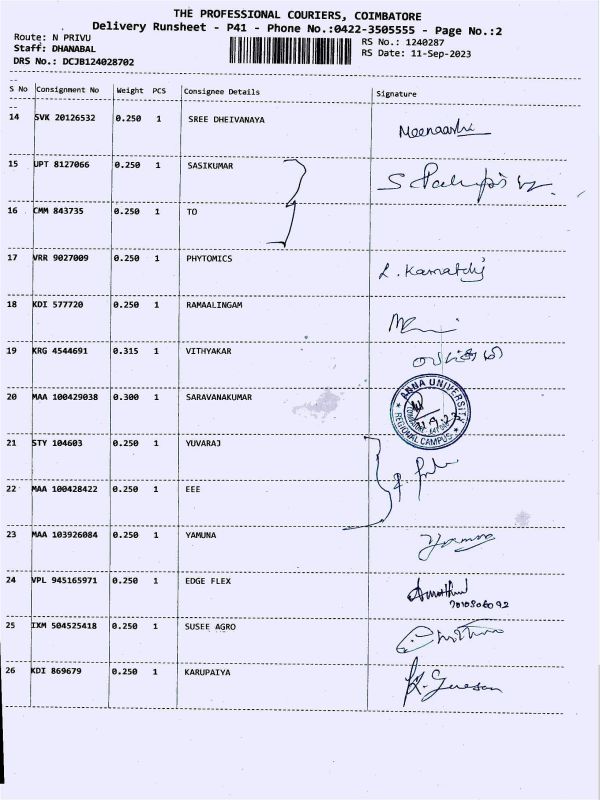 THE PROFESSIONAL COURIERS, COIMBATORE
Delivery Runsheet - P41 - Phone No.:0422-3505555 - Page No.:2
Route: N PRIVU
RS No.: 1240287
Staff: DHANABAL
RS Date: 11-Sep-2023
DRS No.: DCJB124028702
S No Consignment No Weight PCS Consignee Details Signature
14 SVK 20126532 0.250 1 SREE DHEIVANAYA Meenaashi
15 UPT 8127066 0.250 1 SASIKUMAR
16 CMM 843735 0.250 1 TO
17 VRR 9027009 0.250 1 PHYTOMICS
18 KDI 577720 0.250 1 RAMAALINGAM
19 KRG 4544691 0.315 1 VITHYAKAR
20 MAA 100429038 0.300 1 SARAVANAKUMAR
ANNA UNIVERSITY
REGIONAL CAMPUS
21 STY 104603 0.250 1 YUVARAJ
22 MAA 100428422 0.250 1 EEE
23 MAA 103926084 0.250 1 YAMUNA
24 VPL 945165971 0.250 1 EDGE FLEX
25 IXM 504525418 0.250 1 SUSEE AGRO
26 KDI 869679 0.250 1 KARUPAIYA